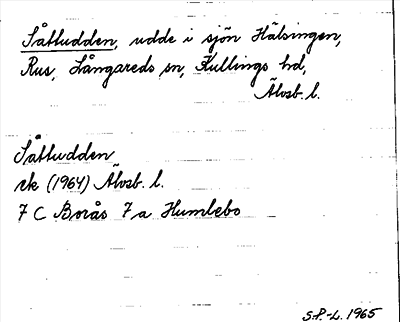 Såtludden, udde i sjön Hälsingen,
Rus, Långareds sn, Kullings hd,
Älvsb. l.
Såtludden
rk (1964) Älvsb. l.
7 C Borås 7 a Humlebo
S.P.-L. 1965